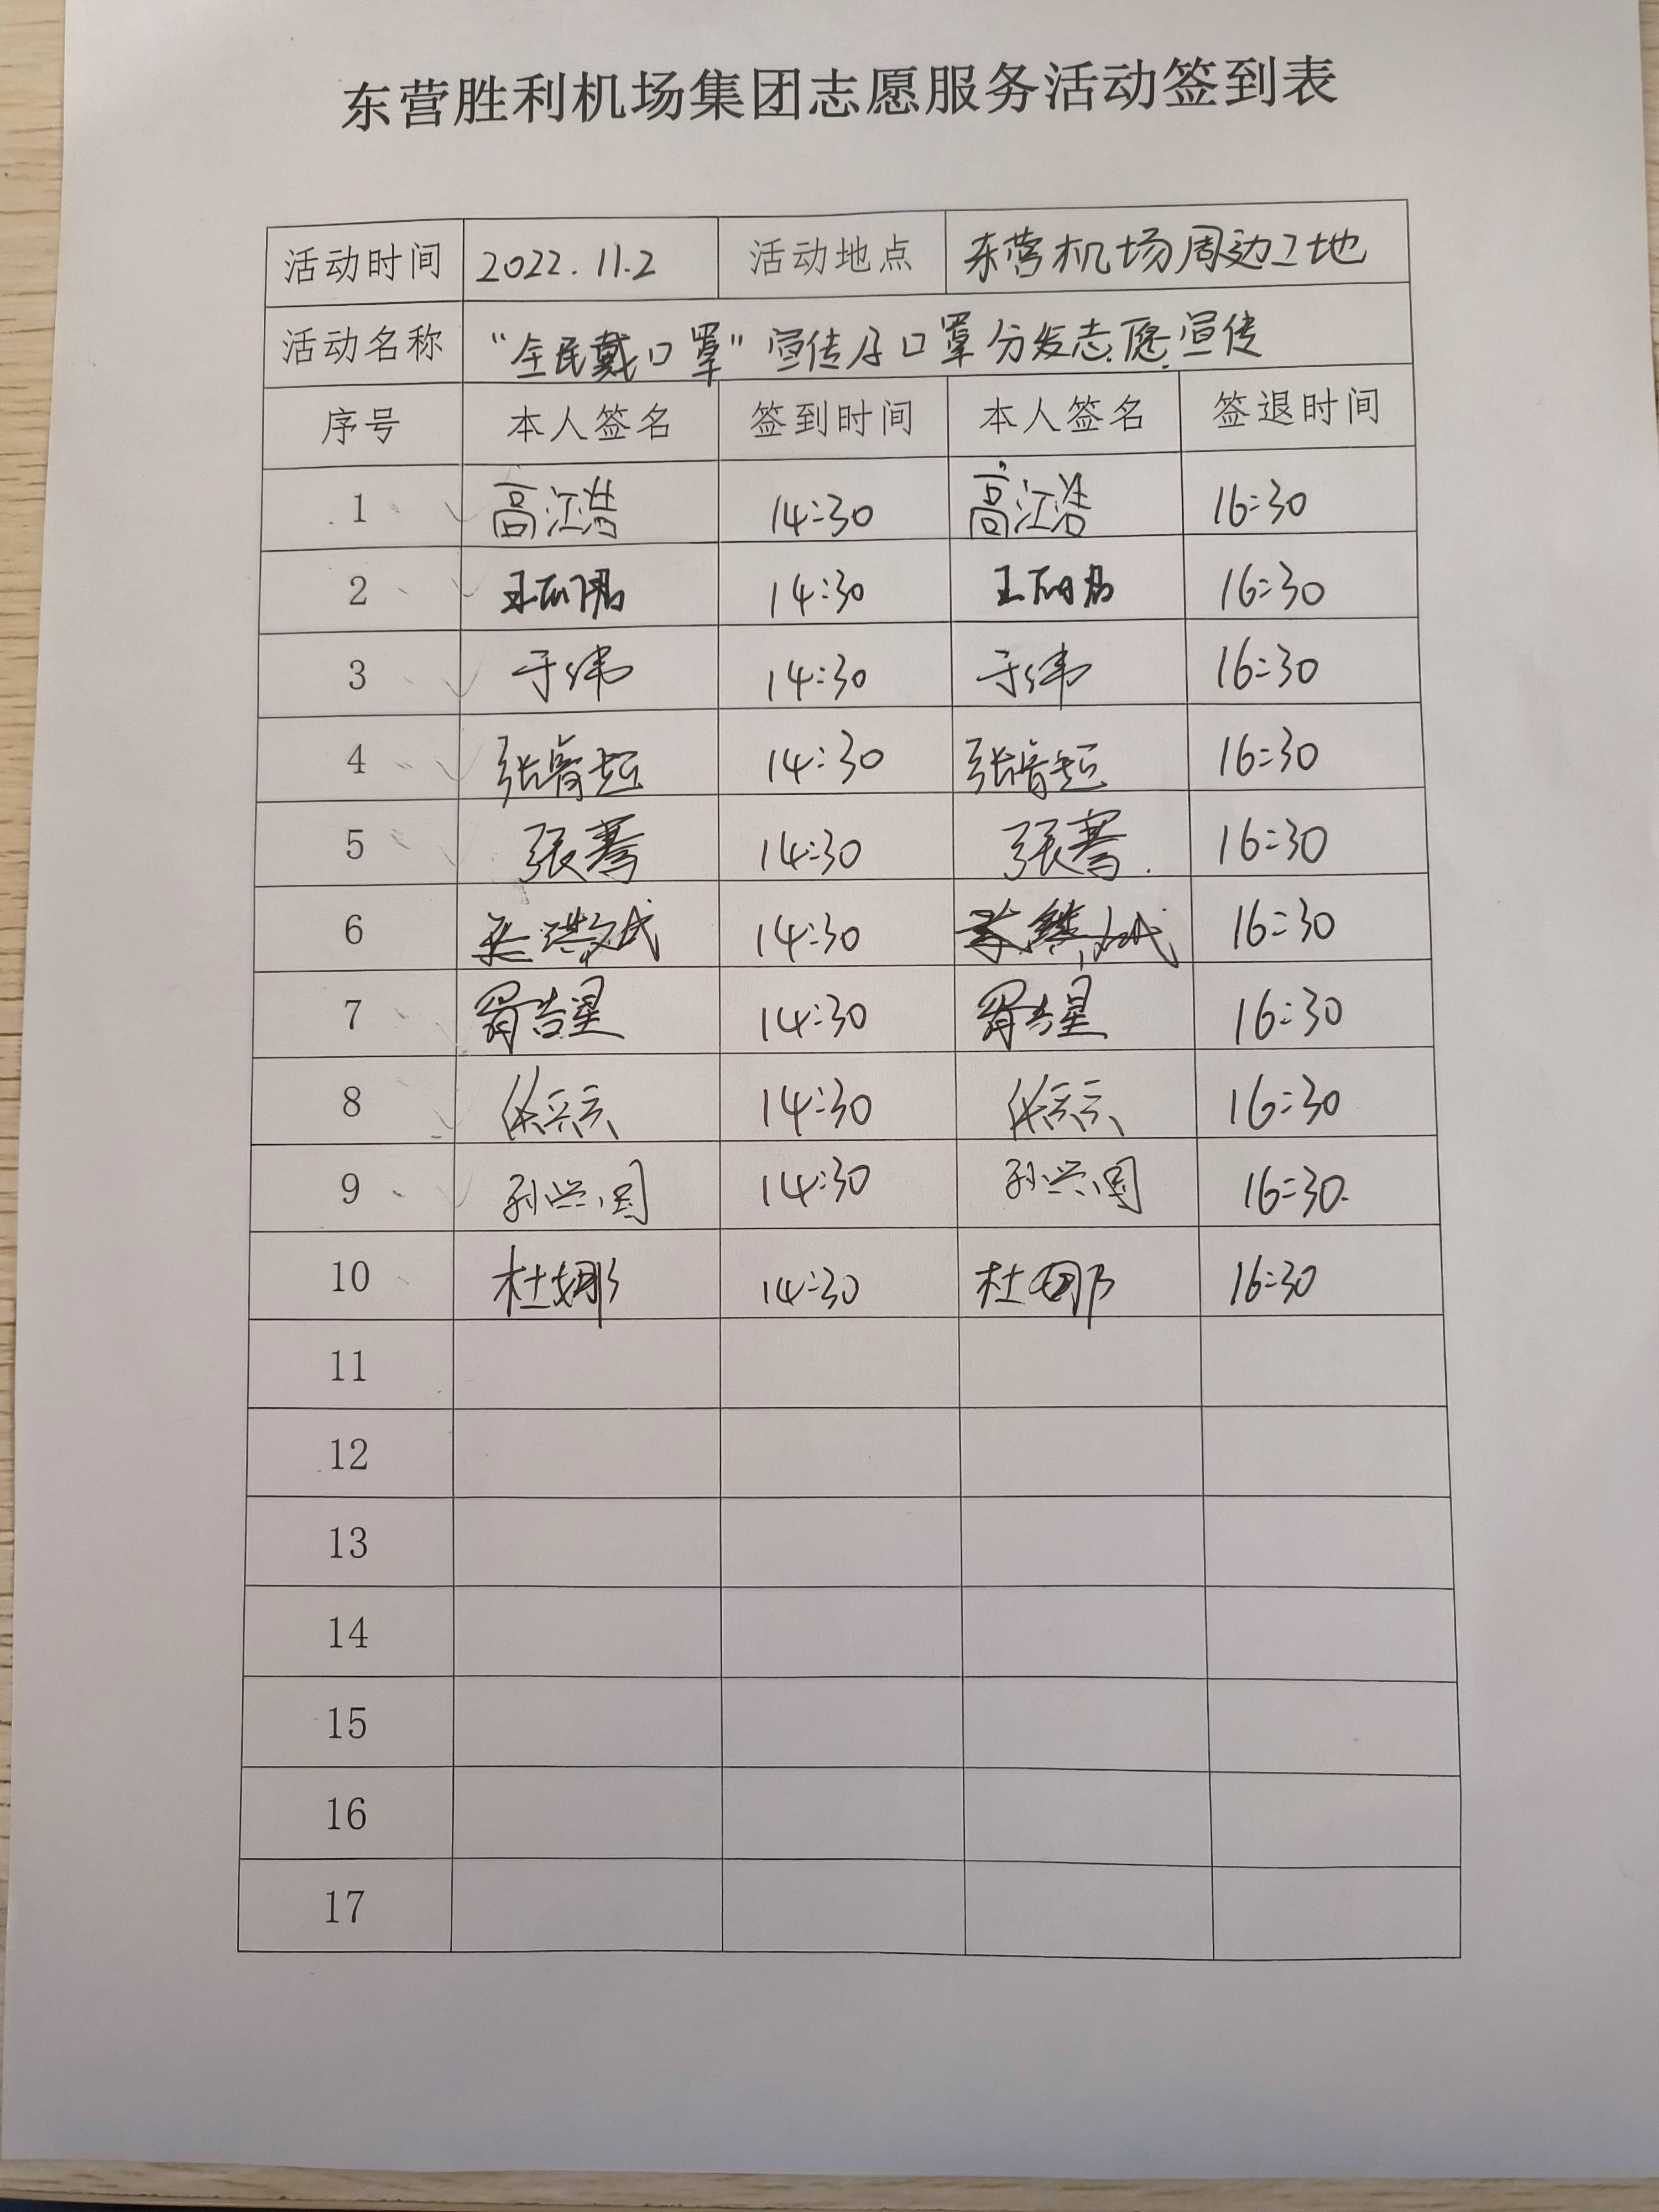 东营胜利机场集团志愿服务活动签到表
活动时间 2022.11.2 活动地点 东营机场周边工地
活动名称 “全民戴口罩”宣传及口罩分发志愿宣传
序号 本人签名 签到时间 本人签名 签退时间
1 高江浩 14:30 高江浩 16:30
2 14:30 16:30
3 于纬 14:30 于纬 16:30
4 14:30 16:30
5 张骞 14:30 张骞 16:30
6 14:30 16:30
7 14:30 16:30
8 14:30 16:30
9 孙兴国 14:30 孙兴国 16:30
10 杜娜 14:30 杜娜 16:30
11
12
13
14
15
16
17